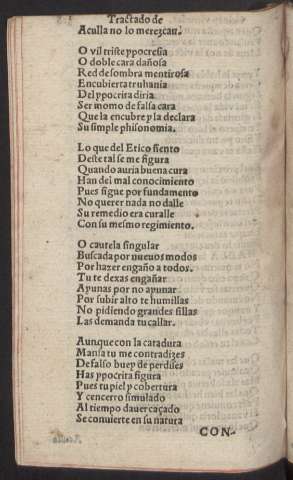 Tractado de
Aculla no lo merezcan.
O vil triste ypocresia
O doble cara dañosa
Red de sombra mentirosa
Encubierta truhania
Del ypocrita diria
Ser momo de falsa cara
Que la encubre y la declara
Su simple phisonomia.
Lo que del Etico siento
Deste tal se me figura
Quando auria buena cura
Han del mal conocimiento
Pues sigue por fundamento
No querer nada no dalle
Su remedio era curalle
Con su mesmo regimiento.
O cautela singular
Buscada por nueuos modos
Por hazer engaño a todos.
Tu te dexas engañar
Ayunas por no ayunar
Por subir alto te humillas
No pidiendo grandes sillas
Las demanda tu callar.
Aunque con la catadura
Mansa tu me contradizes
De falso buey de perdizes
Has ypocrita figura
Pues tu piel y cobertura
Y cencerro simulado
Al tiempo dauer caçado
Se conuierte en su natura
CON-